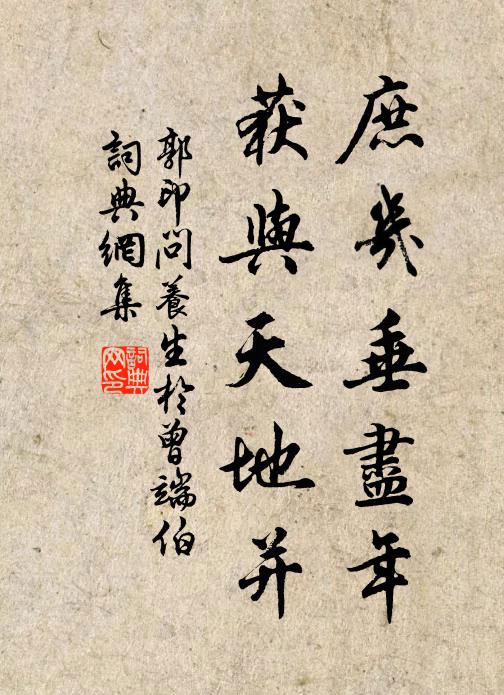 庶幾垂盡年
获與天地并
郭印問養生於曾端伯
詞典網集
詞典网印